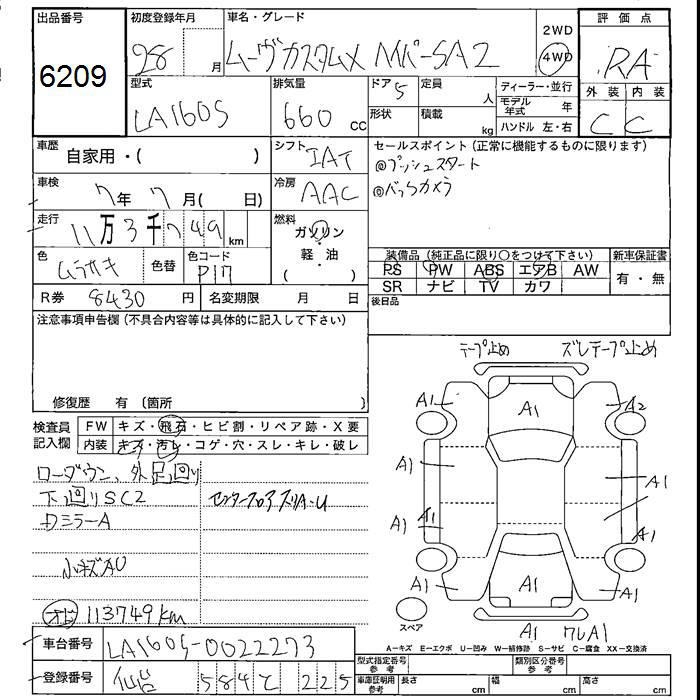 出品番号 初度登録年月 車名・グレード 評価点
6209 28 月 ムーヴカスタムX ハイパーSA2 2WD 4WD RA
型式 排気量 ドア 5 定員 人 ディーラー・並行 外装 内装
LA160S 660 cc 形状 積載 kg モデル年式 年 C C
ハンドル 左・右
車歴 自家用・( ) シフト IAT セールスポイント (正常に機能するものに限ります)
◎プッシュスタート
車検 7年 7月( 日) 冷房 AAC ◎バックカメラ
走行 11万3千749km 燃料 ガソリン
軽・油
( )
色 ムラサキ 色替 色コード P17 装備品 (純正品に限り○をつけて下さい) 新車保証書
PS PW ABS エアB AW 有・無
SR ナビ TV カワ
R券 8430 円 名変期限 月 日 後日品
注意事項申告欄 (不具合内容等は具体的に記入して下さい)
修復歴 有 (箇所 )
検査員記入欄 FW キズ・飛石・ヒビ割・リペア跡・X要
内装 キズ・汚レ・コゲ・穴・スレ・キレ・破レ
ローダウン、外足回り
下回りSC2
Dミラー A
小キズAU
113749km
テープ止め ズレテープ止め
A1 A1 A2
A1 A1
A1 A1 A1
A1 A1 A1
スペア A1 ワレA1
A－キズ E－エクボ U－凹み W－補修跡 S－サビ C－腐食 XX－交換済
車台番号 LA160S-0022273
登録番号 仙台 584 225
型式指定番号 参考 類別区分番号 参考
車庫証明用 参考 長さ cm 幅 cm 高さ cm